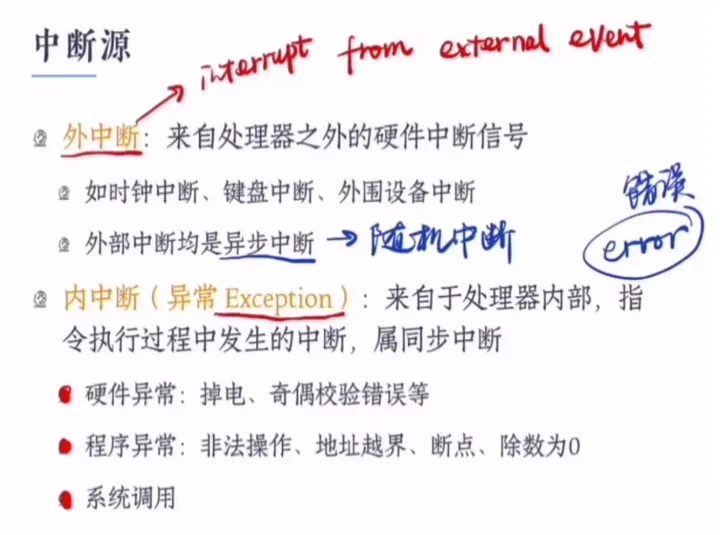 中断源
interrupt from external event
外中断：来自处理器之外的硬件中断信号
如时钟中断、键盘中断、外围设备中断
错误
外部中断均是异步中断→随机中断
error
内中断（异常Exception）：来自于处理器内部，指
令执行过程中发生的中断，属同步中断
硬件异常：掉电、奇偶校验错误等
程序异常：非法操作、地址越界、断点、除数为0
系统调用